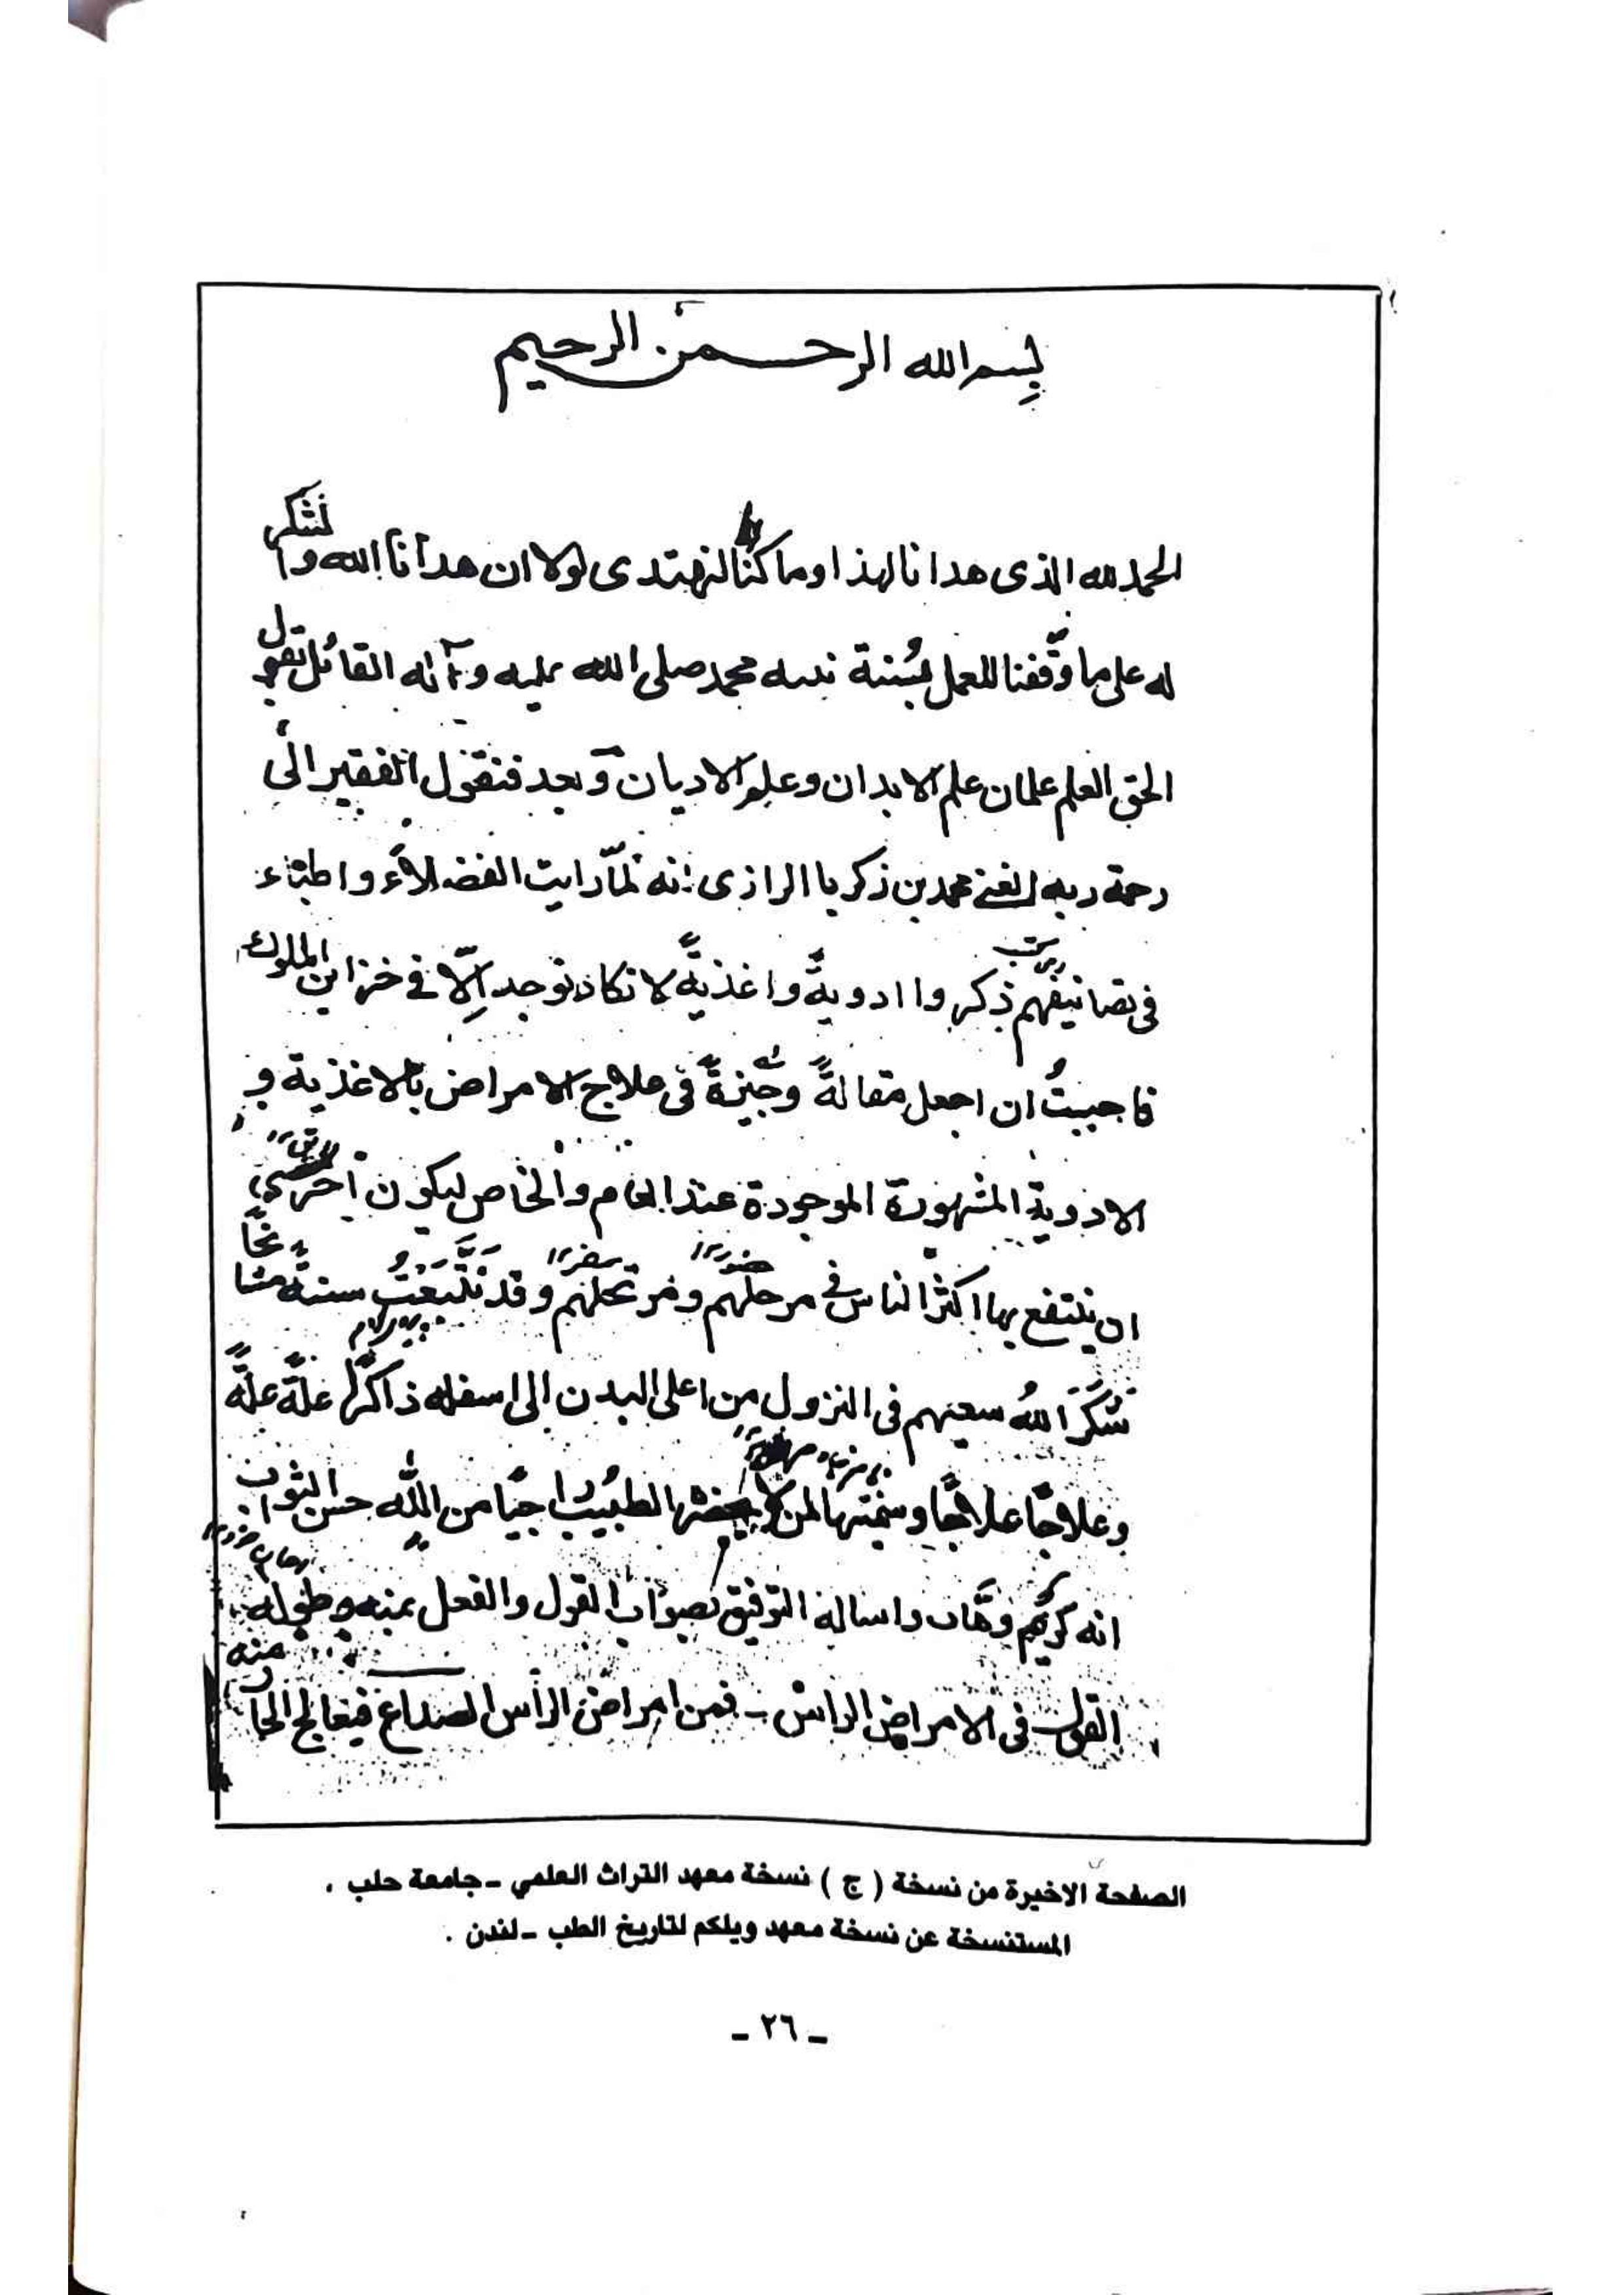 بسم الله الرحمن الرحيم
الحمد لله الذى هدانا لهذا وما كنّا لنهتدى لولا ان هدانا الله والشكر
له على ما وقّفنا للعمل بسُنة نبيه محمد صلى الله عليه وآله القائل بقول
الحق العلم علمان علم الابدان وعلم الاديان وبعد فنقول الفقير الى
رحمة ربه الغنى محمد بن زكريا الرازى انه لمّا رايت الفضلاء واطبّاء
فى تصانيفهم ذكروا ادويةً واغذيةً لا تكاد توجد الّا فى خزاين الملوك
فاجبيتُ ان اجعل مقالةً وجيزةً فى علاج الامراض بالاغذية و
الادوية المشهورة الموجودة عند العام والخاص ليكون احرى
ان ينتفع بها اكثر الناس فى مرحلهم ومرتحلهم وقد تتبّعتُ سنة مشا
شكرَ اللهُ سعيهم فى النزول من اعلى البدن الى اسفله ذاكرًا علّةً علّةً
وعلاجًا علاجًا وسمّتها لمن لا يحضرها الطبيبُ راجيًا من الله حسن الثواب
انه كريم وهّاب واساله التوفيق بصواب القول والفعل بمنه وطوله
منه
القول فى الامراض الراس - فمن امراض الرأس الصداع فيعالج الحا
الصفحة الاخيرة من نسخة ( ج ) نسخة معهد التراث العلمي - جامعة حلب .
المستنسخة عن نسخة معهد ويلكم لتاريخ الطب - لندن .
- ٢٦ -